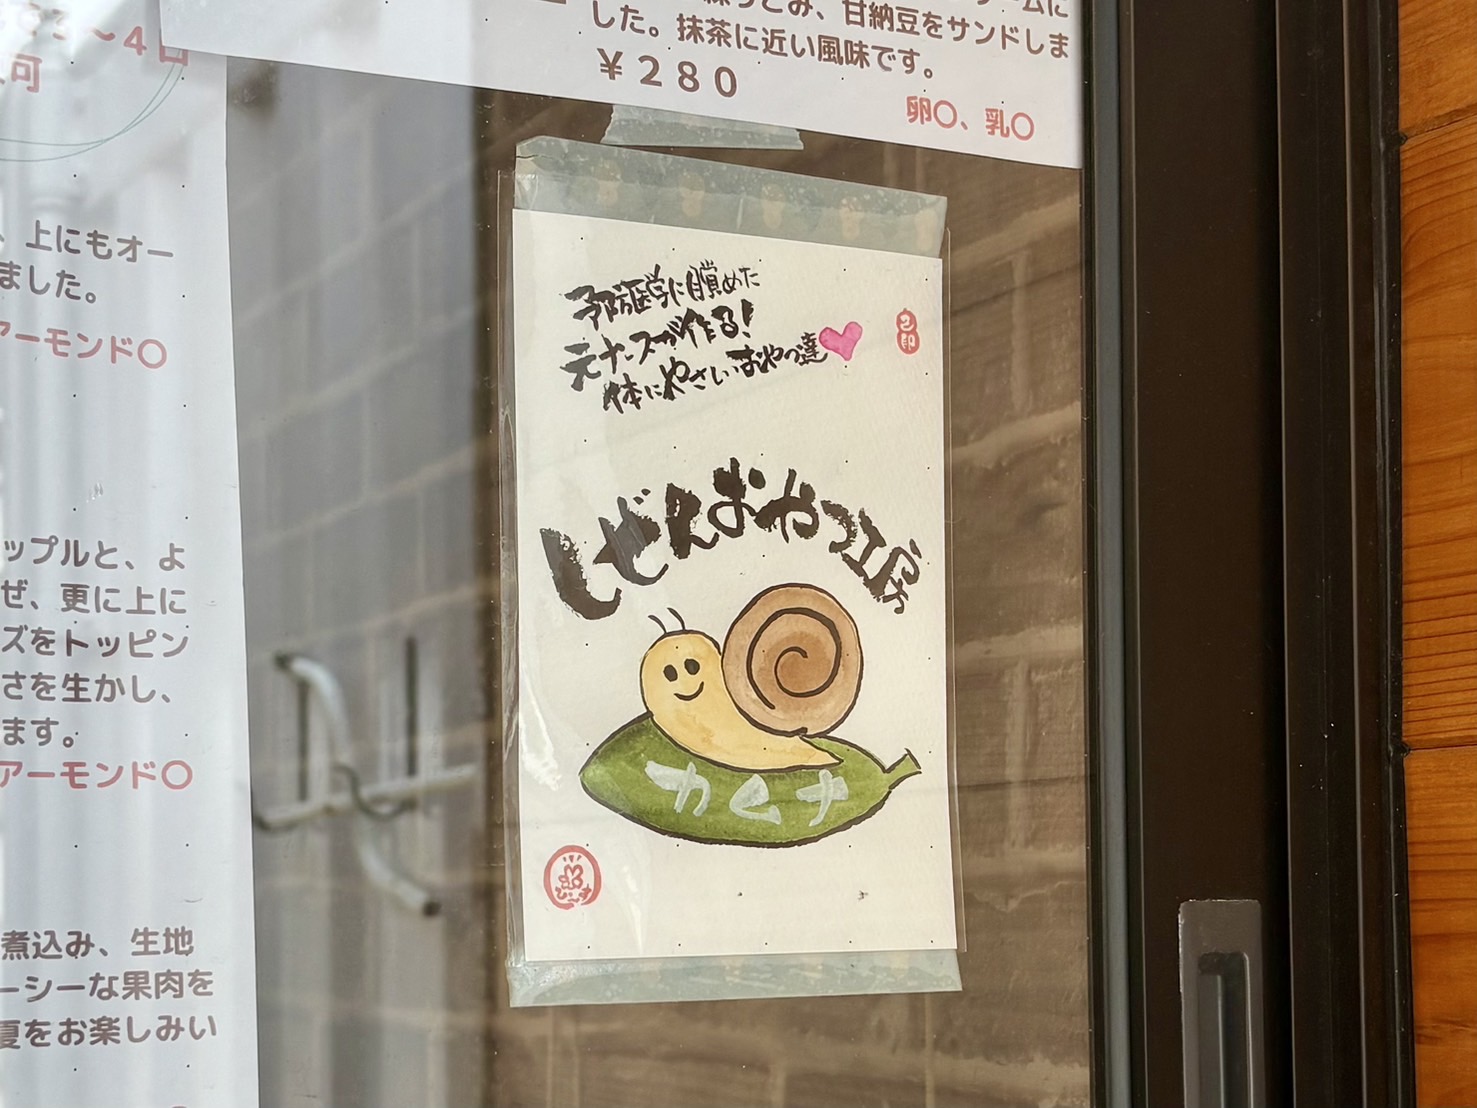 ～4日
可
、上にもオー
ました。
アーモンド〇
ップルと、よ
ぜ、更に上に
ズをトッピン
さを生かし、
ます。
アーモンド〇
煮込み、生地
ーシーな果肉を
夏をお楽しみい
み、甘納豆をサンドしま
した。抹茶に近い風味です。
￥２８０
卵〇、乳〇
予防医学に目覚めた
元ナースが作る！
体にやさしいおやつ達
しぜんおやつ工房
カムナ